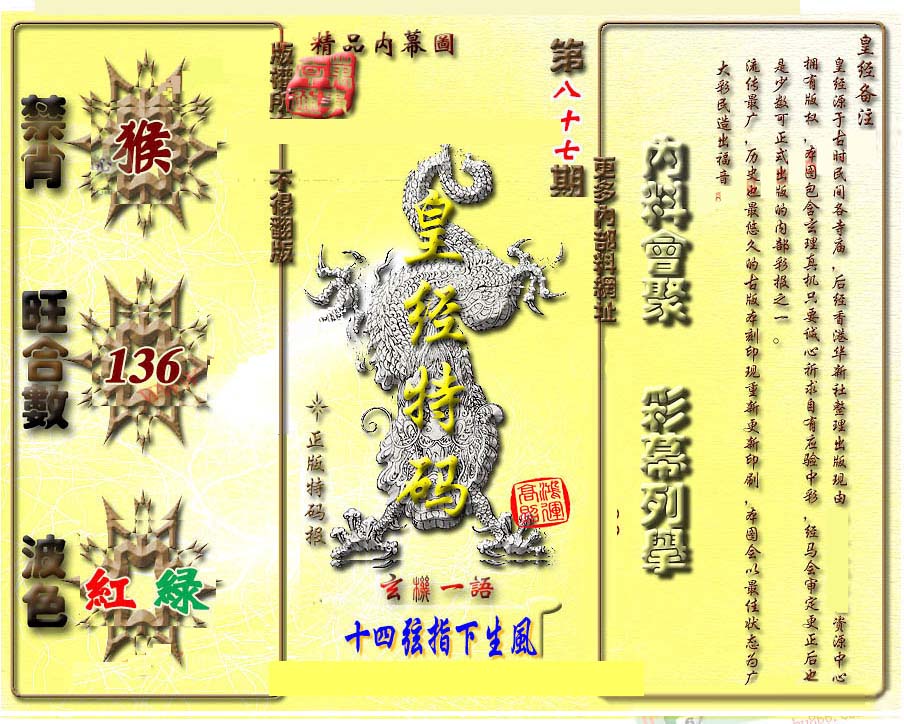 精品内幕圖
版權所
不得翻版
第八十七期
更多內部料網址
禁肖
猴
旺合數
136
波色
紅 綠
皇经特码
正版特码报
鴻運
高照
玄機一語
十四弦指下生風
内料會聚
彩幕列舉
皇经备注
皇经源于古时民间各寺庙,后经香港华新社整理出版现由 资源中心
拥有版权,本图包含玄理真机只要诚心祈求自有应验中彩,经马会审定更正后也
是少数可正式出版的内部彩报之一。
流传最广,历史也最悠久的古版本刻印现重新更新印刷,本图会以最佳状态为广
大彩民造出福音